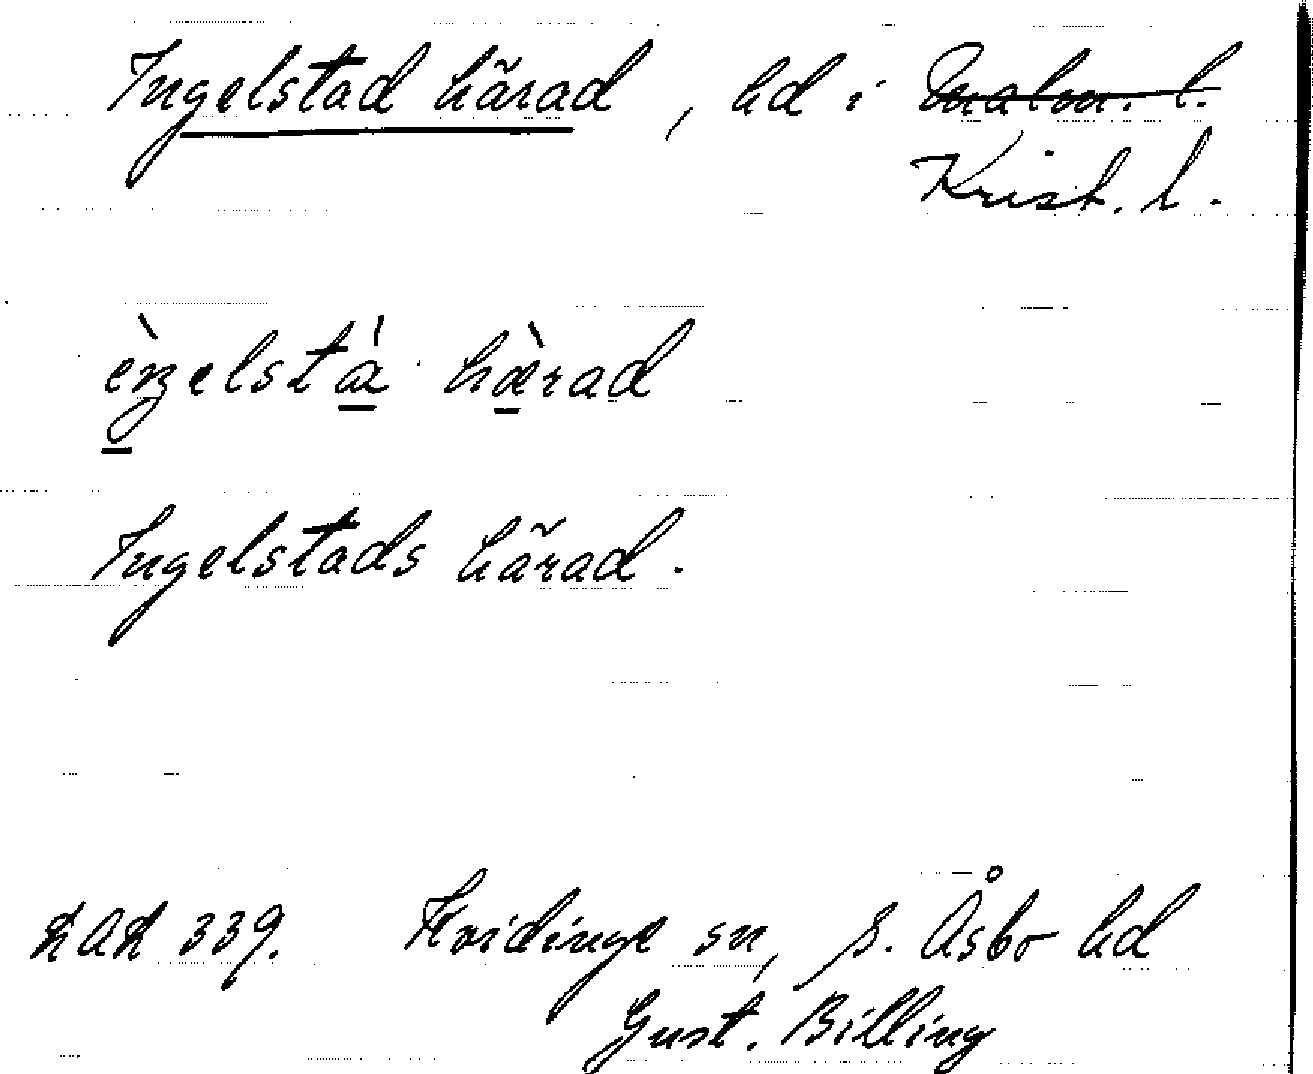 Ingelstad härad, hd i Malm. l.
Krist. l.
èŋelstá hæ̀rad
Ingelstads härad.
339. Hvidinge sn, S. Åsbo hd
Gust. Billing